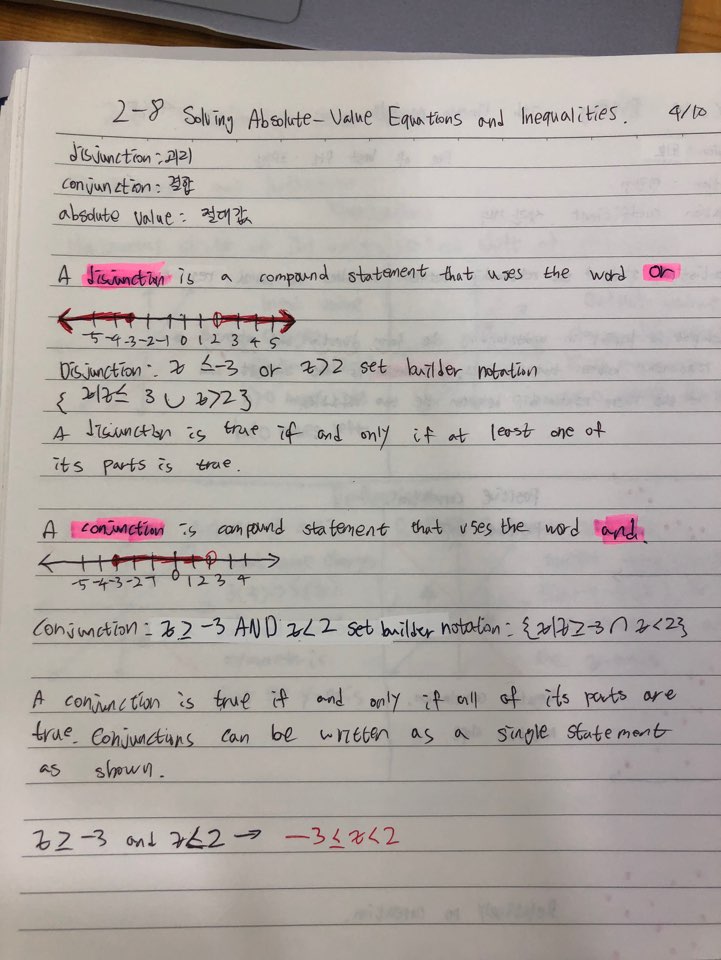 2-8 Solving Absolute-Value Equations and Inequalities. 4/10
disjunction: 괴리
conjunction: 결합
absolute value: 절대값
A disjunction is a compound statement that uses the word or
-5 -4 -3 -2 -1 0 1 2 3 4 5
Disjunction: x ≤ -3 or x>2 set builder notation
{ x|x ≤ 3 ∪ x>2}
A disjunction is true if and only if at least one of
its parts is true.
A conjunction is compound statement that uses the word and.
-5 -4 -3 -2 -1 0 1 2 3 4
Conjunction: x ≥ -3 AND x<2 set builder notation: {x|x ≥ -3 ∩ x<2}
A conjunction is true if and only if all of its parts are
true. Conjunctions can be written as a single statement
as shown.
x ≥ -3 and x≤2 → -3 ≤ x<2